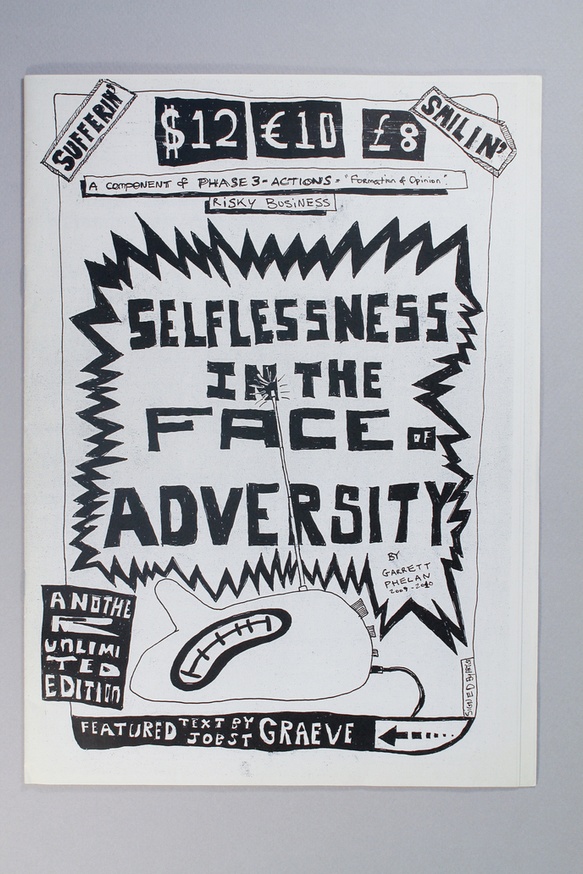 SUFFERIN'
$12 €10 £8
SMILIN'
A COMPONENT of PHASE 3 - ACTIONS - "Formation of Opinion".
RISKY BUSINESS
SELFLESSNESS
IN THE
FACE OF
ADVERSITY
BY
GARRETT
PHELAN
2009-2010
ANOTHE
R
UNLIMI
TED
EDITION
FEATURED TEXT BY
JOBST GRAEVE